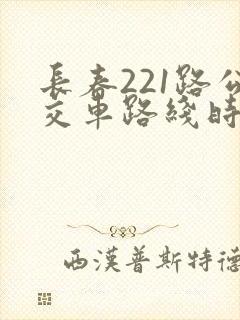 長春221路公
交車路綫時
西漢普斯特德